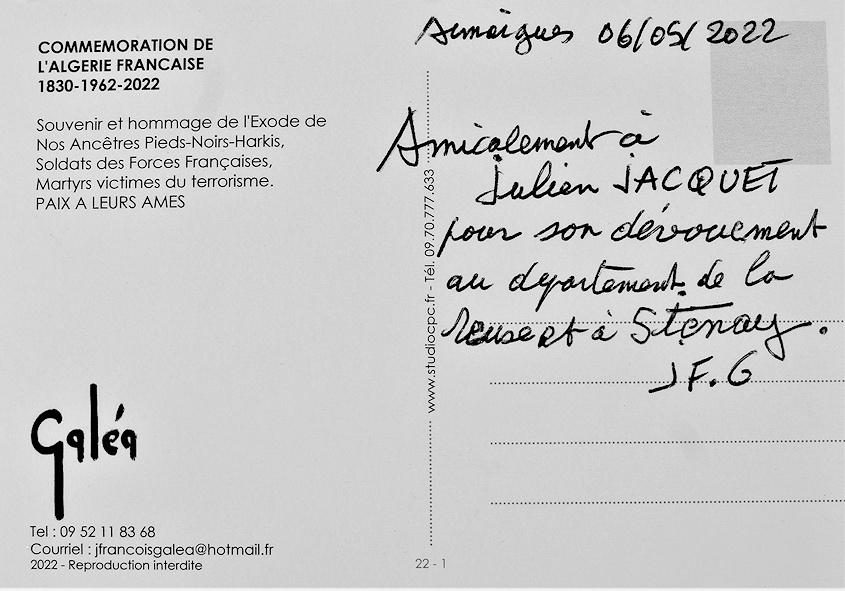 COMMEMORATION DE
L'ALGERIE FRANCAISE
1830-1962-2022
Souvenir et hommage de l'Exode de
Nos Ancêtres Pieds-Noirs-Harkis,
Soldats des Forces Françaises,
Martyrs victimes du terrorisme.
PAIX A LEURS AMES
Galéa
Tel : 09 52 11 83 68
Courriel : jfrancoisgalea@hotmail.fr
2022 - Reproduction interdite
www.studiocpc.fr - Tél. 09.70.777.633
22 - 1
06/05/2022
Amicalement à
Julien JACQUET
pour son dévouement
au département de la
à Stenay.
JF.G